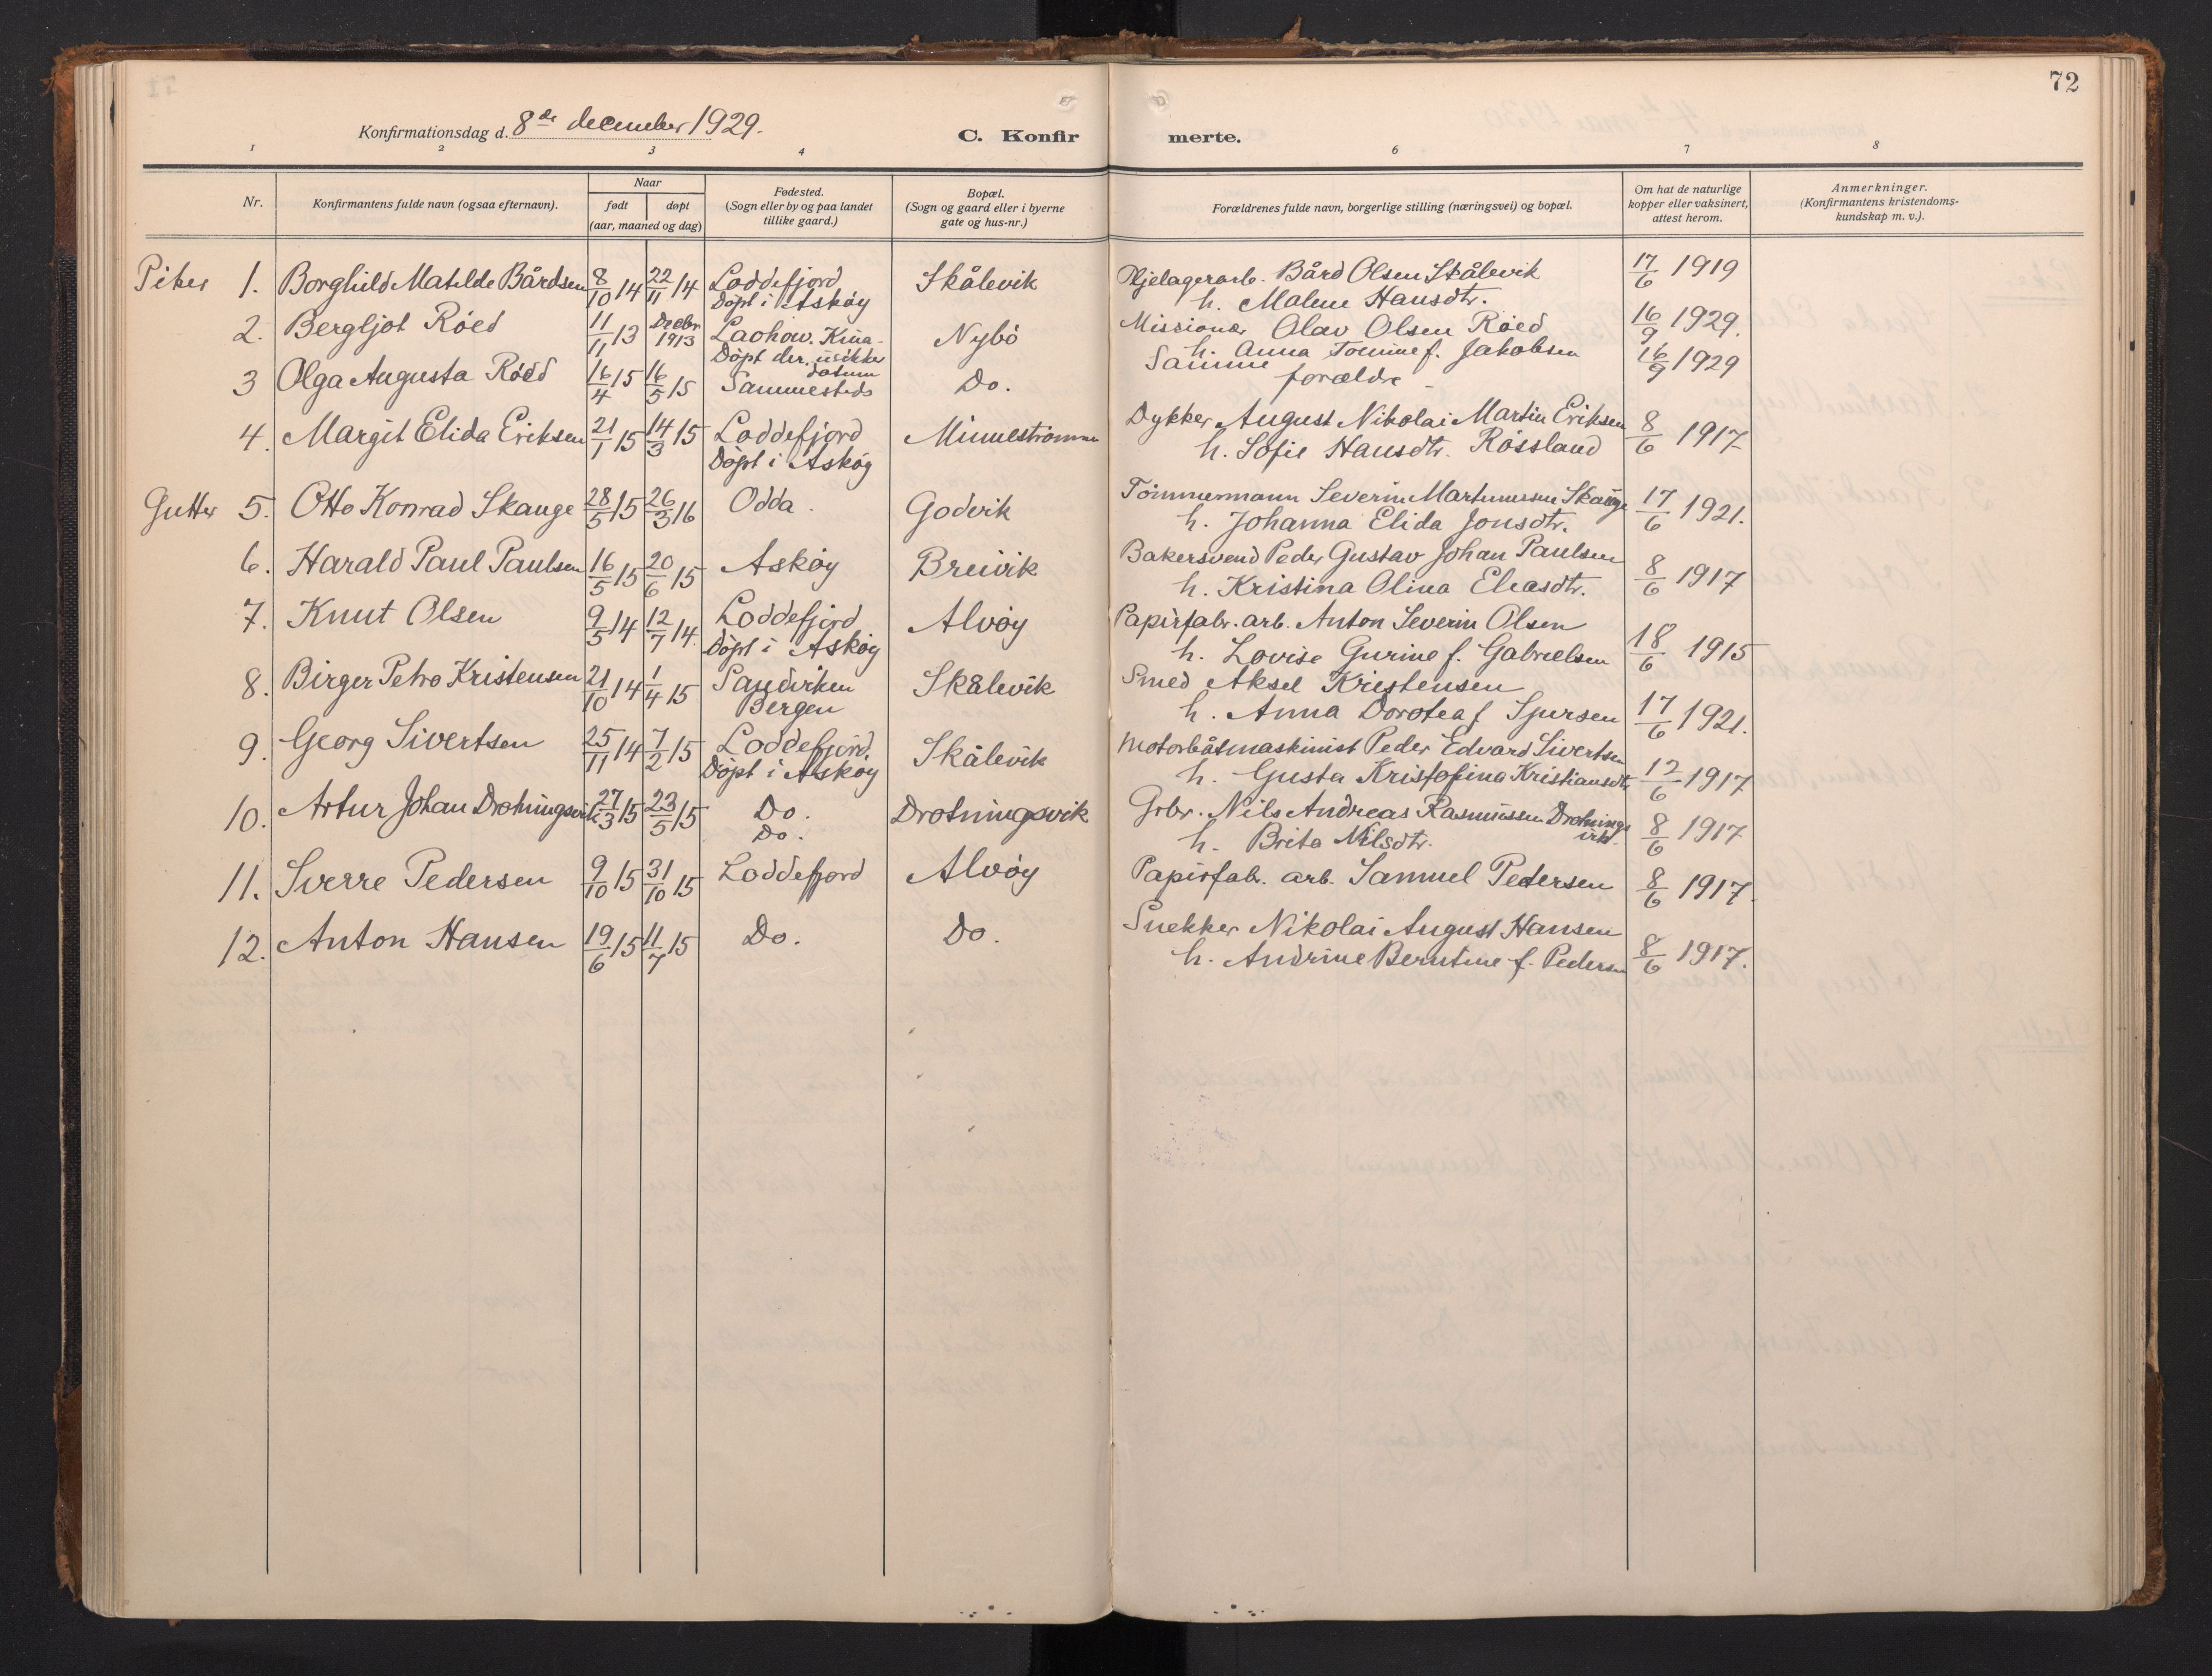 72
Konfirmationsdag d. 8de december 1929.
C. Konfirmerte.
1 2 3 4 6 7 8
Nr.
Konfirmantens fulde navn (ogsaa efternavn).
Naar
født døpt
(aar, maaned og dag)
Fødested.
(Sogn eller by og paa landet
tillike gaard.)
Bopæl.
(Sogn og gaard eller i byerne
gate og hus-nr.)
Forældrenes fulde navn, borgerlige stilling (næringsvei) og bopæl.
Om hat de naturlige
kopper eller vaksinert,
attest herom.
Anmerkninger.
(Konfirmantens kristendoms-
kundskap m. v.).
Piker 1. Borghild Matilde Bårdsen 8/10 14 22/11 14 Loddefjord Skålevik Bård Olsen Skålevik 17/6 1919
Døpt i Askøy h. Malene Hansdtr.
2. Bergljot Røed 11/11 13 Decbr 1913 Laohow. Kina. Nybö Missionær Olav Olsen Røed 16/9 1929.
Døpt der. usikker datum h. Anna Tomine f. Jakobsen
3 Olga Augusta Röed 16/4 15 16/5 15 Sammesteds Do. Samme forældre 16/9 1929
4. Margit Elida Eriksen 21/1 15 14/3 15 Loddefjord Minnestrømmen Dykker August Nikolai Martin Eriksen 8/6 1917
Døpt i Askøy h. Sofie Hansdtr. Røssland
Gutter 5. Otto Konrad Skauge 28/5 15 26/3 16 Odda. Godvik Tömmermann Severin Martinussen Skauge 17/6 1921.
h. Johanna Elida Jonsdtr.
6. Harald Paul Paulsen 16/5 15 20/6 15 Askøy Breivik Bakersvend Peder Gustav Johan Paulsen 8/6 1917
h. Kristina Olina Eliasdtr.
7. Knut Olsen 9/5 14 12/7 14 Loddefjord Alvøy Papirfabr. arb. Anton Severin Olsen 18/6 1915
Døpt i Askøy h. Lovise Gurine f. Gabrielsen
8. Birger Petro Kristensen 21/10 14 1/4 15 Sandviken Skålevik Smed Aksel Kristensen 17/6 1921.
Bergen h. Anna Dorotea f. Sjursen
9. Georg Sivertsen 25/11 14 7/2 15 Loddefjord. Skålevik Motorbåtmaskinist Peder Edvard Sivertsen 12/6 1917
Døpt i Askøy h. Gusta Kristofina Kristiansdtr.
10. Artur Johan Drotningsvik 27/3 15 23/5 15 Do. Drotningsvik Grbr. Nils Andreas Rasmussen Drotningsvik. 8/6 1917
Do. h. Brita Nilsdtr.
11. Sverre Pedersen 9/10 15 31/10 15 Loddefjord Alvøy Papirfab. arb. Samuel Pedersen 8/6 1917.
12. Anton Hansen 19/6 15 11/7 15 Do. Do. Snekker Nikolai August Hansen 8/6 1917.
h. Andrine Berntine f. Pedersen